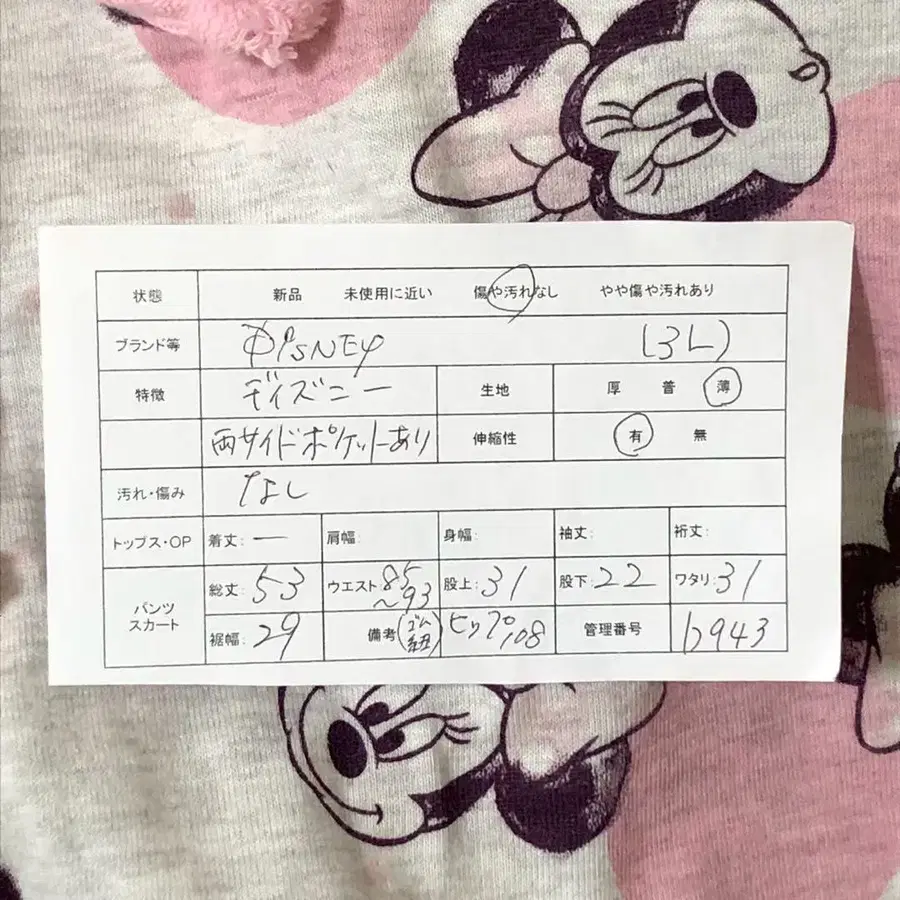 状態 新品 未使用に近い 傷や汚れなし やや傷や汚れあり
ブランド等 DisNEY (3L)
特徴 ディズニー 生地 厚 普 薄
両サイドポケットあり 伸縮性 有 無
汚れ・傷み なし
トップス・OP 着丈: ー 肩幅: 身幅: 袖丈: 裄丈:
パンツ スカート 総丈: 53 ウエスト: 85〜93 股上: 31 股下: 22 ワタリ: 31
裾幅: 29 備考 (ゴム紐) ヒップ108 管理番号 b943